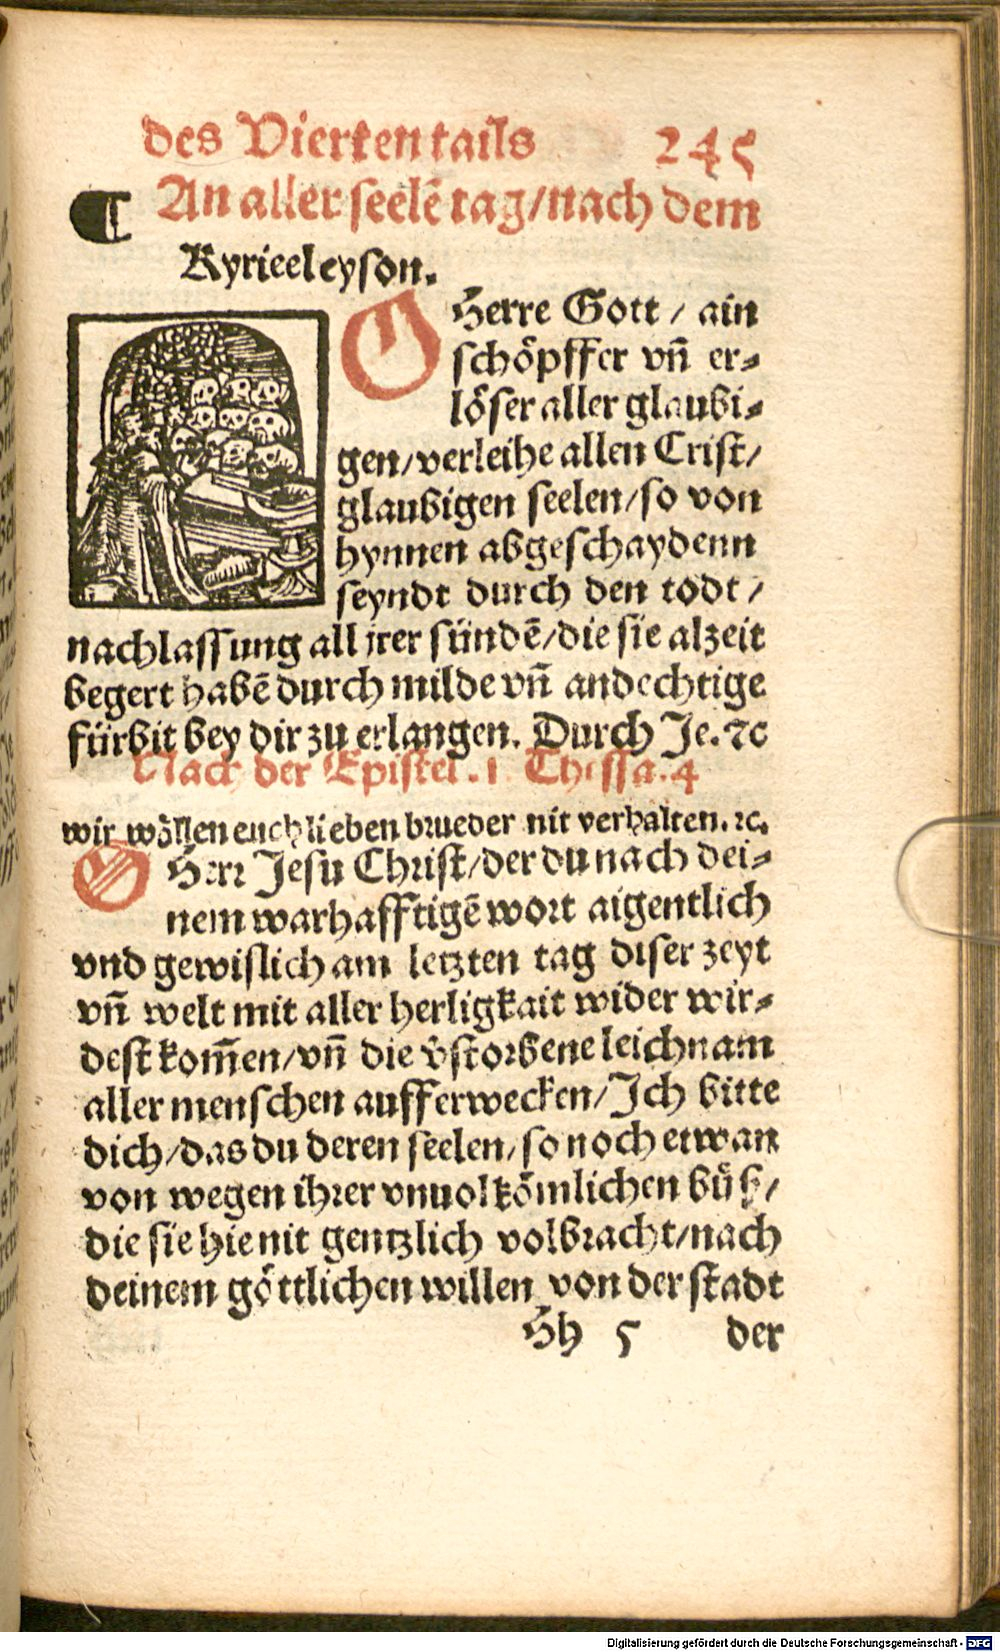 des Vierten tails 245
¶ An aller seelẽ tag/nach dem
Kyrieeleyson.
O Herre Gott / ain
schöpffer vñ er⸗
löser aller glaubi⸗
gen/verleihe allen Crist/
glaubigen seelen/so von
hynnen abgeschaydenn
seyndt durch den todt /
nachlassung all jrer sündẽ/die sie alzeit
begert habẽ durch milde vñ andechtige
fürbit bey dir zu erlangen. Durch Je. ⁊c
Nach der Epistel. 1. Thessa. 4
wir wöllen euch lieben brueder nit verhalten. ⁊c.
O Herr Jesu Christ/der du nach dei⸗
nem warhafftigẽ wort aigentlich
vnd gewislich am letzten tag diser zeyt
vñ welt mit aller herligkait wider wir⸗
dest kom̃en/vñ die v̉storbene leichnam
aller menschen aufferwecken/Ich bitte
dich/das du deren seelen/so noch etwan
von wegen ihrer vnuolkõmlichen bůß/
die sie hie nit gentzlich volbracht/nach
deinem göttlichen willen von der stadt
Hh 5 der
Digitalisierung gefördert durch die Deutsche Forschungsgemeinschaft - DFG